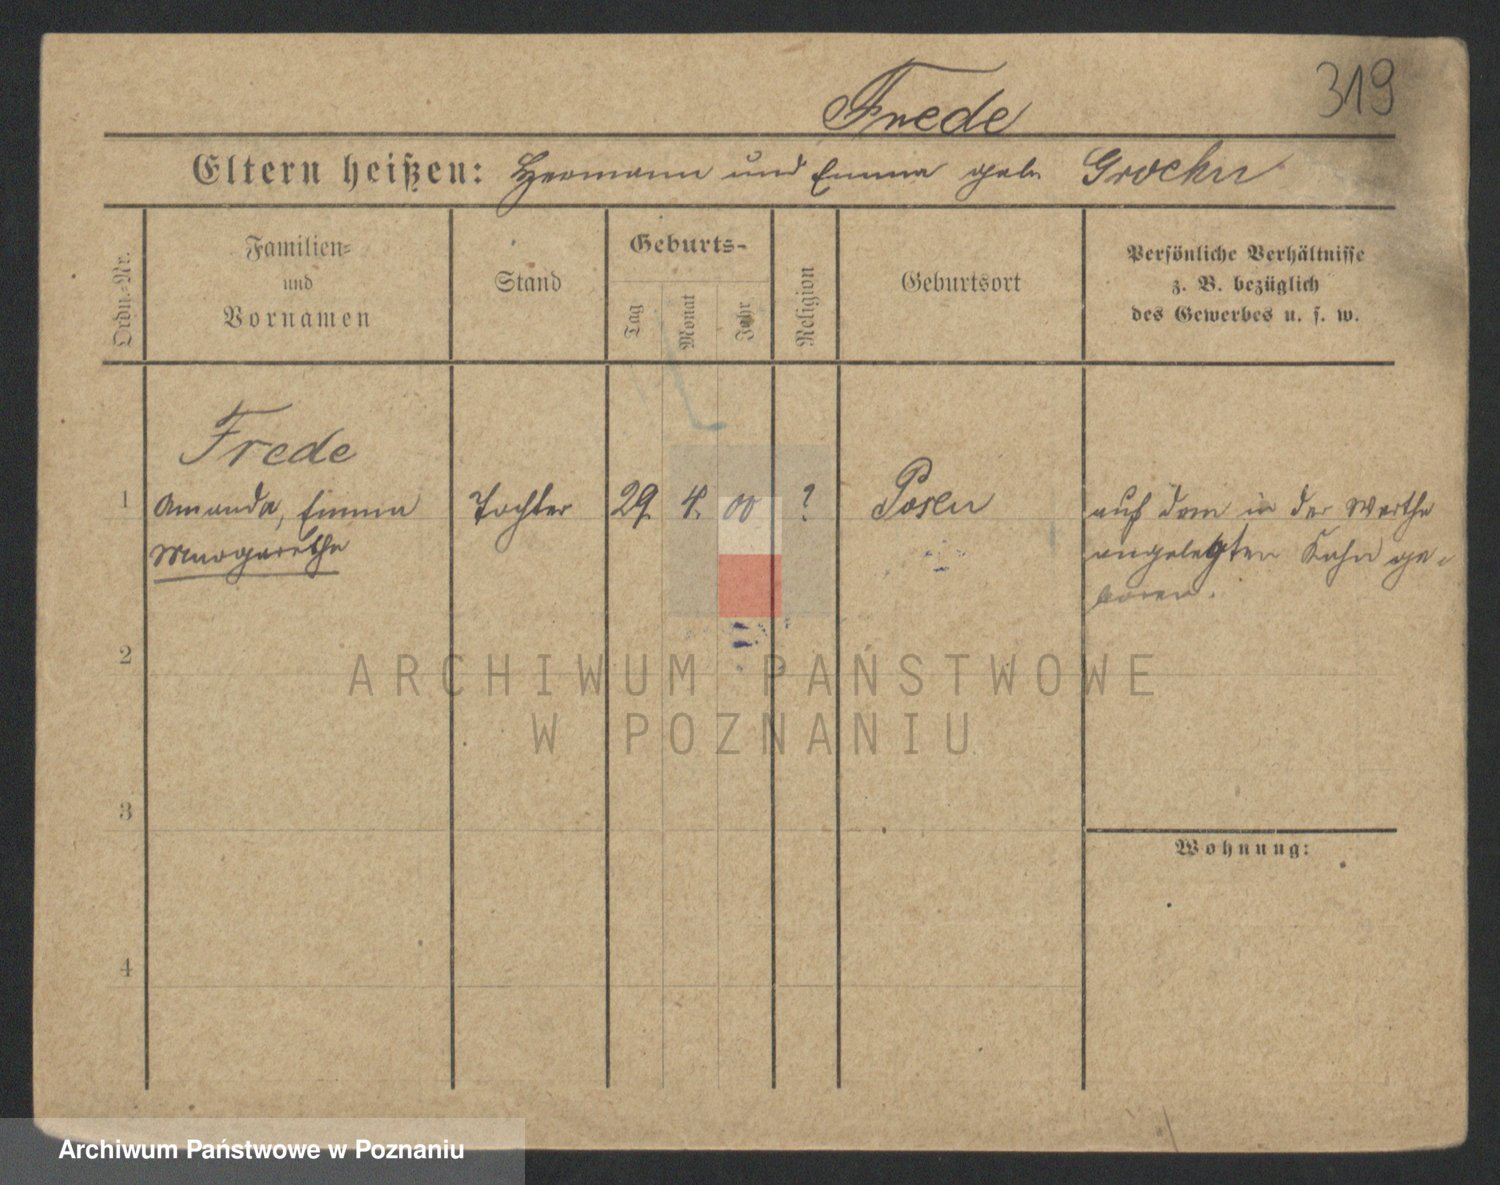 319
Frede
Eltern heißen: Hermann und Emma geb.
Ordn.-Nr.
Familien-
und
Vornamen
Stand
Geburts-
Tag
Monat
Jahr
Religion
Geburtsort
Persönliche Verhältnisse
z. B. bezüglich
des Gewerbes u. s. w.
Frede
1 Amanda, Emma Tochter 29. 4. 00 ? Posen auf dem in der Warthe
Margarethe angelegten Kahn ge-
boren.
2
ARCHIWUM PAŃSTWOWE
W POZNANIU
3
Wohnung:
4
Archiwum Państwowe w Poznaniu